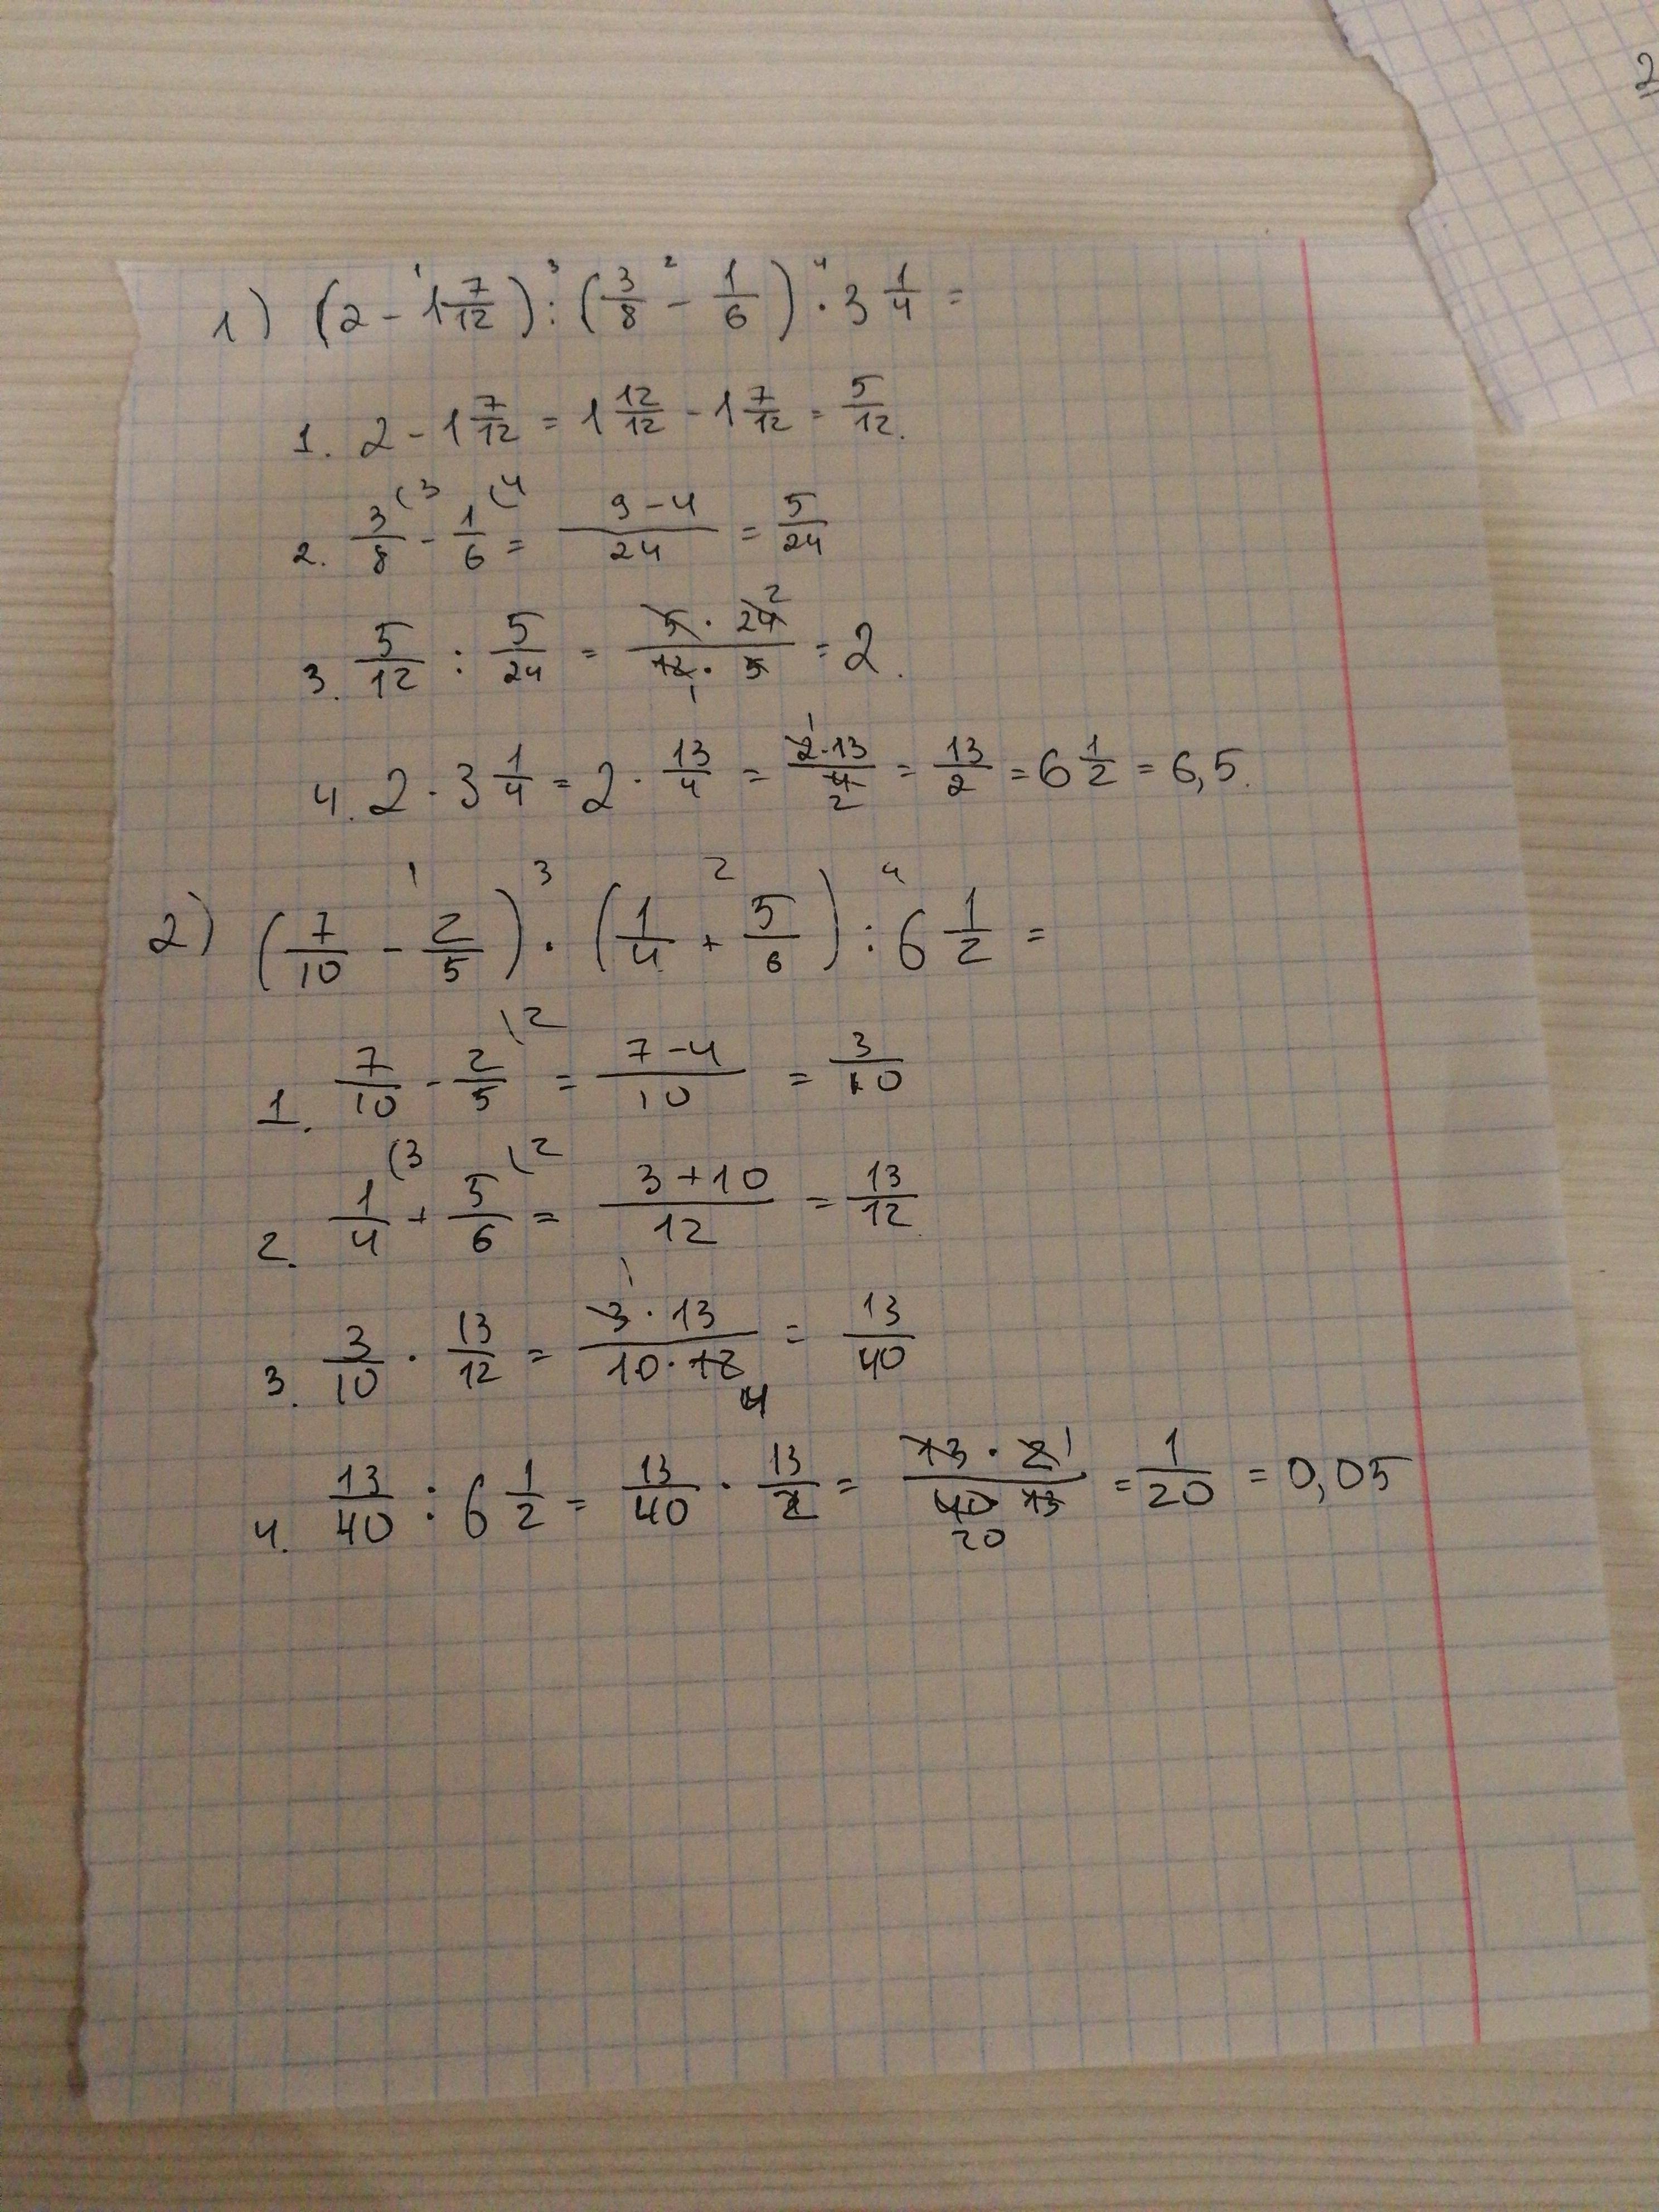 2
1) (2 - 1 7/12) : (3/8 - 1/6) · 3 1/4 =
1. 2 - 1 7/12 = 1 12/12 - 1 7/12 = 5/12.
2. 3/8 (3 - 1/6 (4 = 9-4/24 = 5/24
3. 5/12 : 5/24 = 5 · 24 2/12 1 · 5 = 2.
4. 2 · 3 1/4 = 2 · 13/4 = 2 1 · 13/4 2 = 13/2 = 6 1/2 = 6,5.
2) (7/10 - 2/5) · (1/4 + 5/6) : 6 1/2 =
1. 7/10 - 2/5 \2 = 7-4/10 = 3/10
2. 1/4 (3 + 5/6 (2 = 3+10/12 = 13/12
3. 3/10 · 13/12 = 3 1 · 13/10 · 12 4 = 13/40
4. 13/40 : 6 1/2 = 13/40 · 13/2 = 13 · 2 1/40 20 13 = 1/20 = 0,05